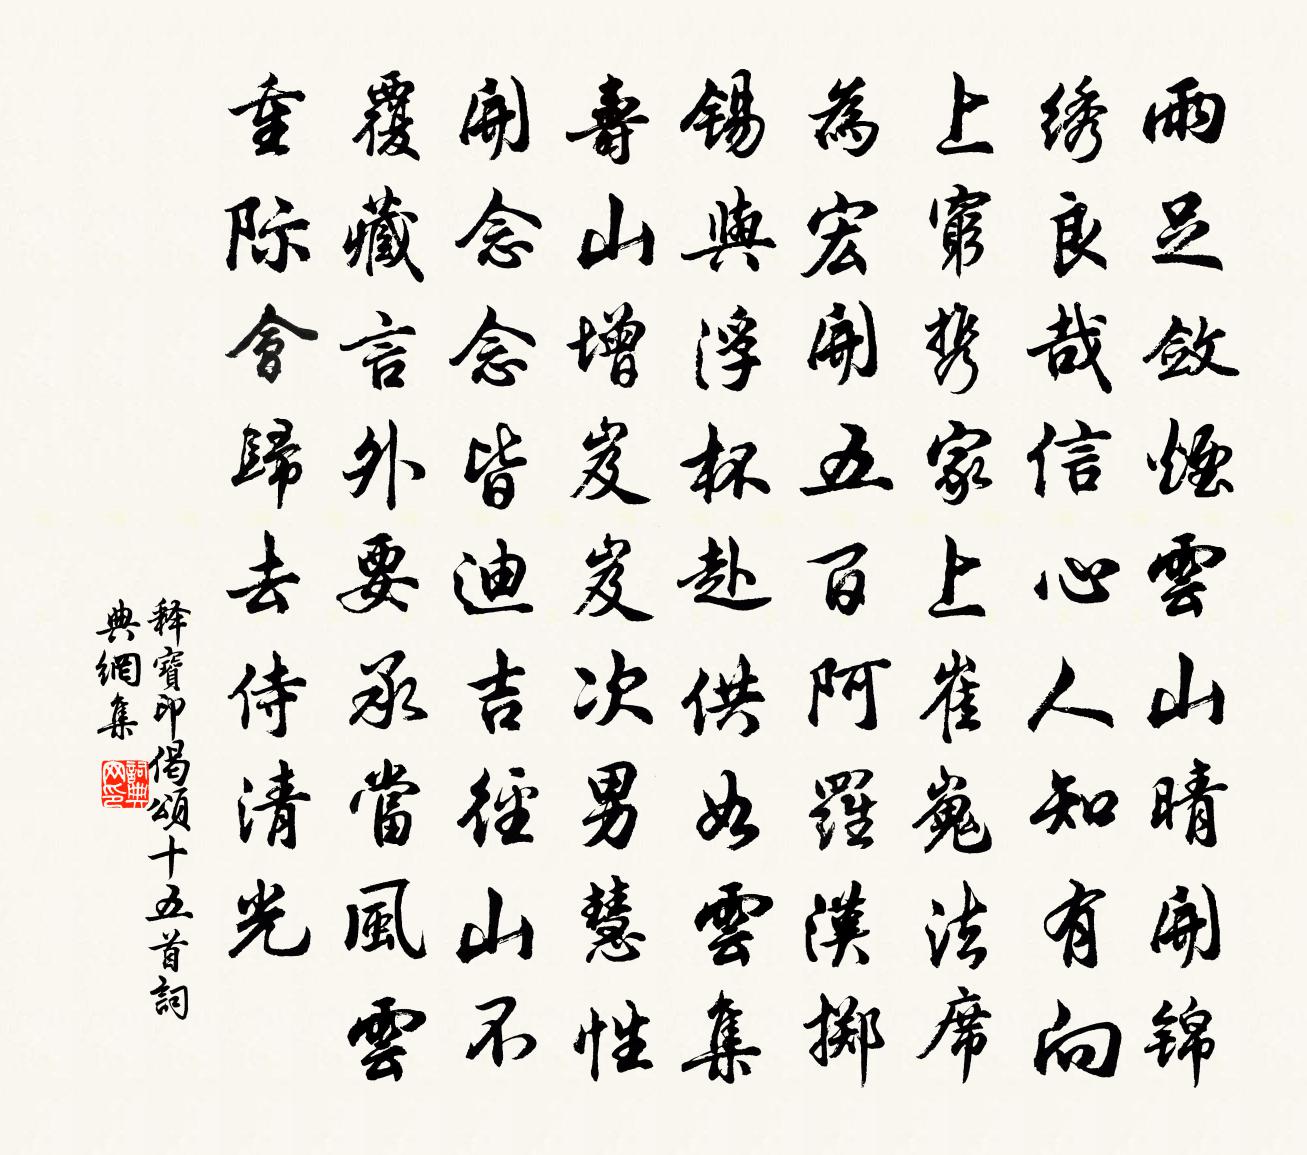 雨足斂煙雲山晴開錦
綉良哉信心人知有向
上窮携家上崔嵬法席
為宏開五百阿羅漢擲
錫與浮杯赴供如雲集
壽山增岌岌次男慧性
開念念皆迪吉徑山不
覆藏言外要承當風雲
重際會歸去侍清光
释寶印偈頌十五首詞
典網集
詞典